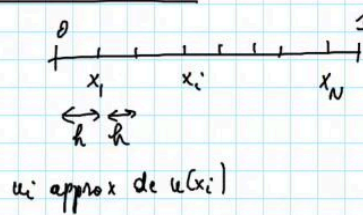 0
x₁ xᵢ x_N
h h
uᵢ approx de u(xᵢ)